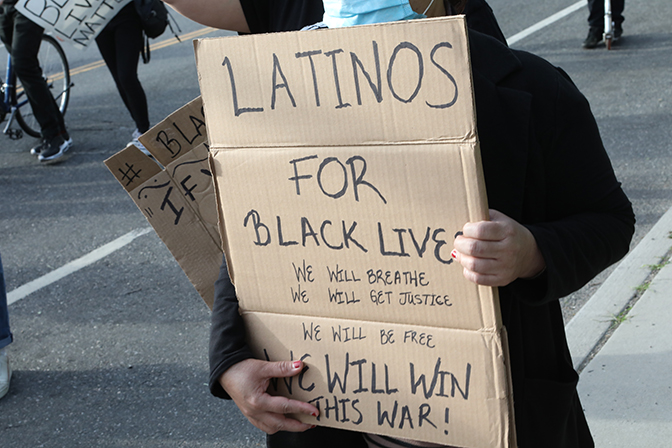 LIVES
MATTER
# BLA
IF Y
LATINOS
FOR
BLACK LIVES
WE WILL BREATHE
WE WILL GET JUSTICE
WE WILL BE FREE
WE WILL WIN
THIS WAR!